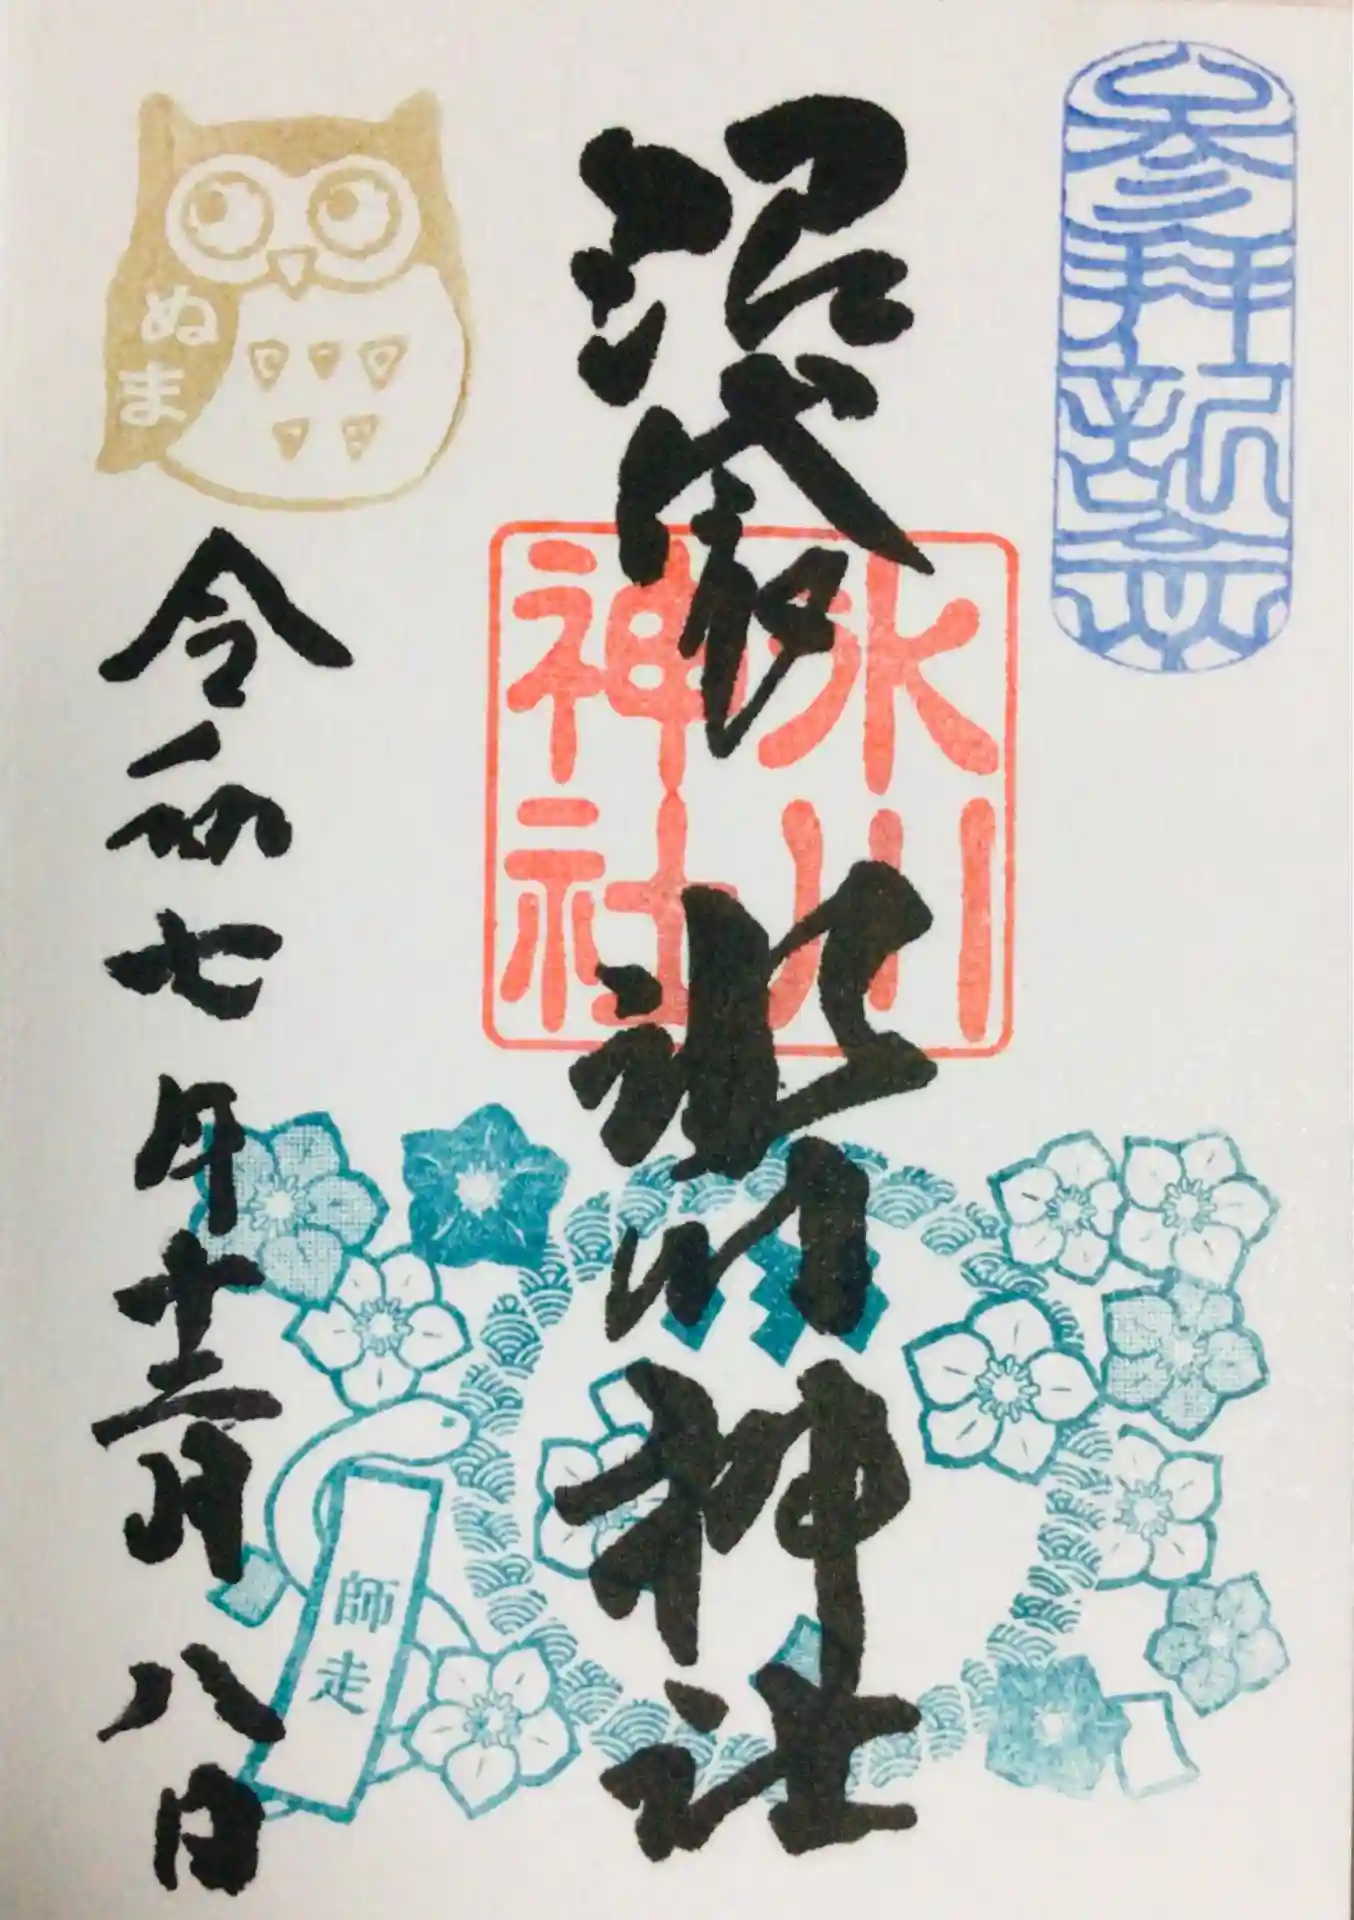 参拝記念
沼袋
氷川神社
氷川
神社
ぬま
令和七年十二月八日
師走